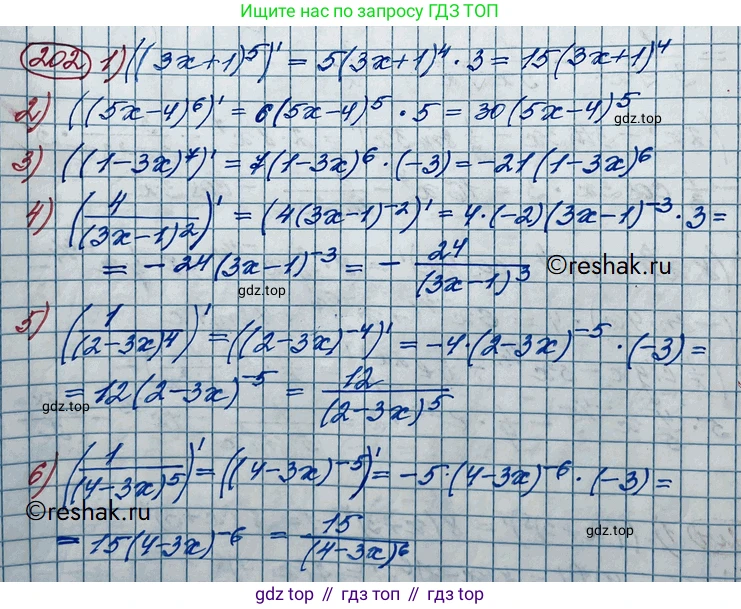 Ищите нас по запросу ГДЗ ТОП
202 1) ((3x+1)^5)' = 5(3x+1)^4 · 3 = 15(3x+1)^4
2) ((5x-4)^6)' = 6(5x-4)^5 · 5 = 30(5x-4)^5
gdz.top
3) ((1-3x)^7)' = 7(1-3x)^6 · (-3) = -21(1-3x)^6
4) (4/(3x-1)^2)' = (4(3x-1)^-2)' = 4·(-2)(3x-1)^-3 · 3 =
= -24(3x-1)^-3 = - 24/(3x-1)^3
©reshak.ru
gdz.top
5) (1/(2-3x)^4)' = ((2-3x)^-4)' = -4·(2-3x)^-5 · (-3) =
= 12(2-3x)^-5 = 12/(2-3x)^5
gdz.top
6) (1/(4-3x)^5)' = ((4-3x)^-5)' = -5·(4-3x)^-6 · (-3) =
©reshak.ru
gdz.top
= 15(4-3x)^-6 = 15/(4-3x)^6
gdz.top // гдз топ // gdz.top